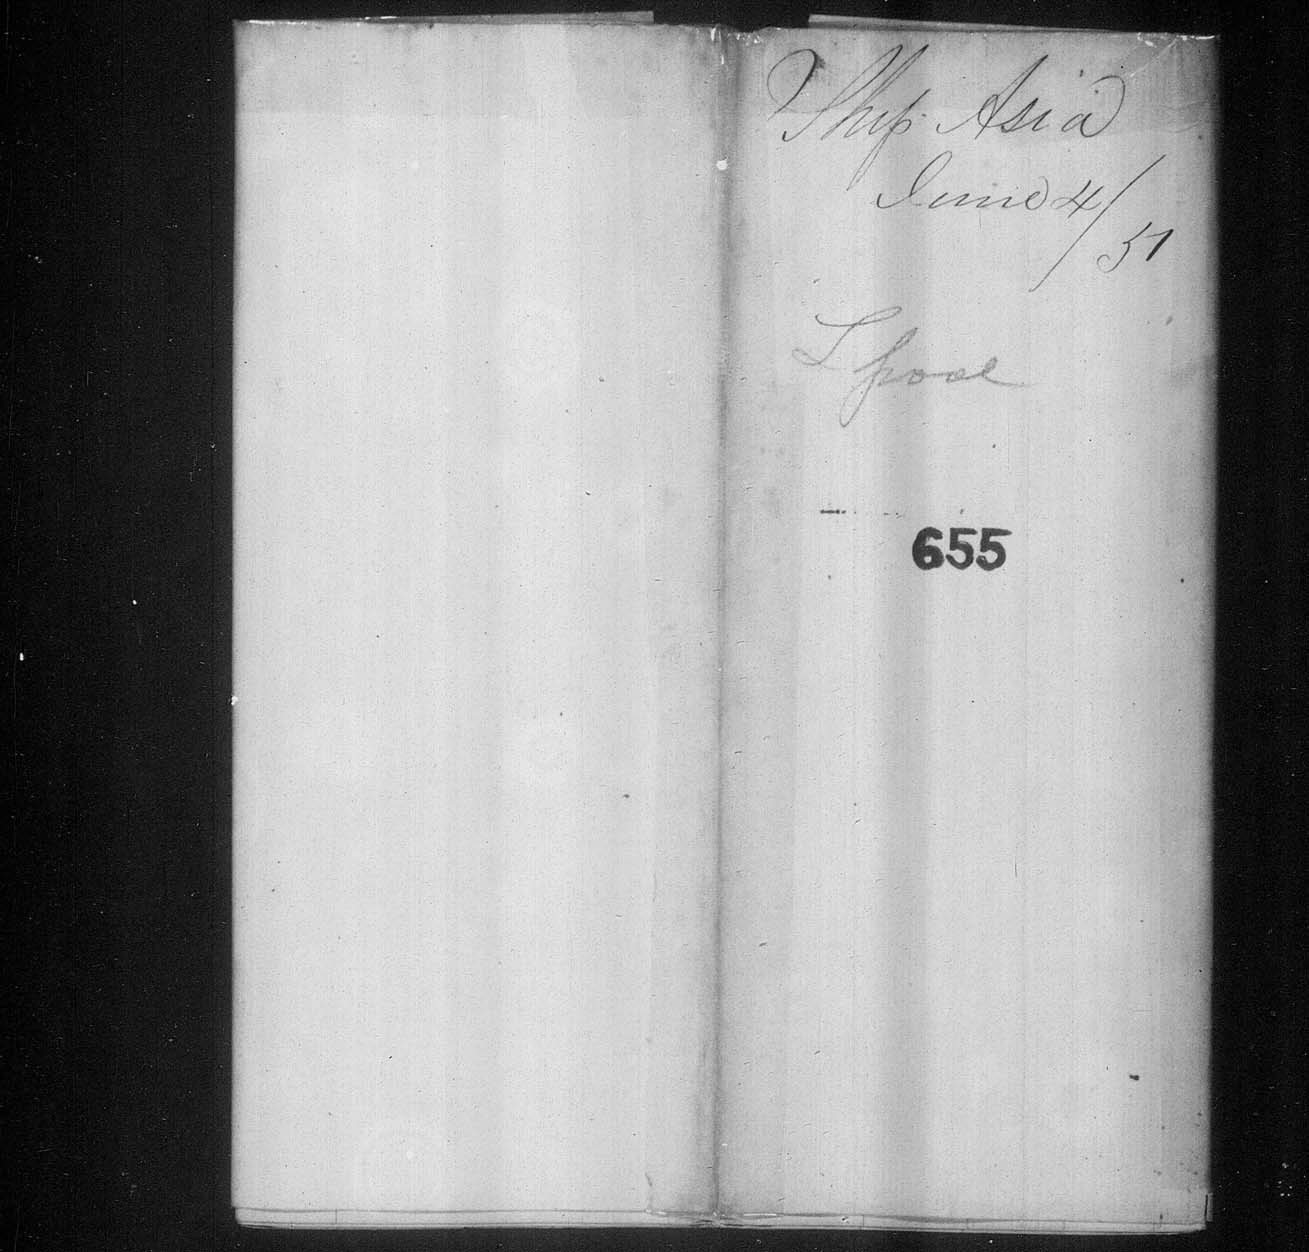 Ship Asia
June 4/51
L'pool
655